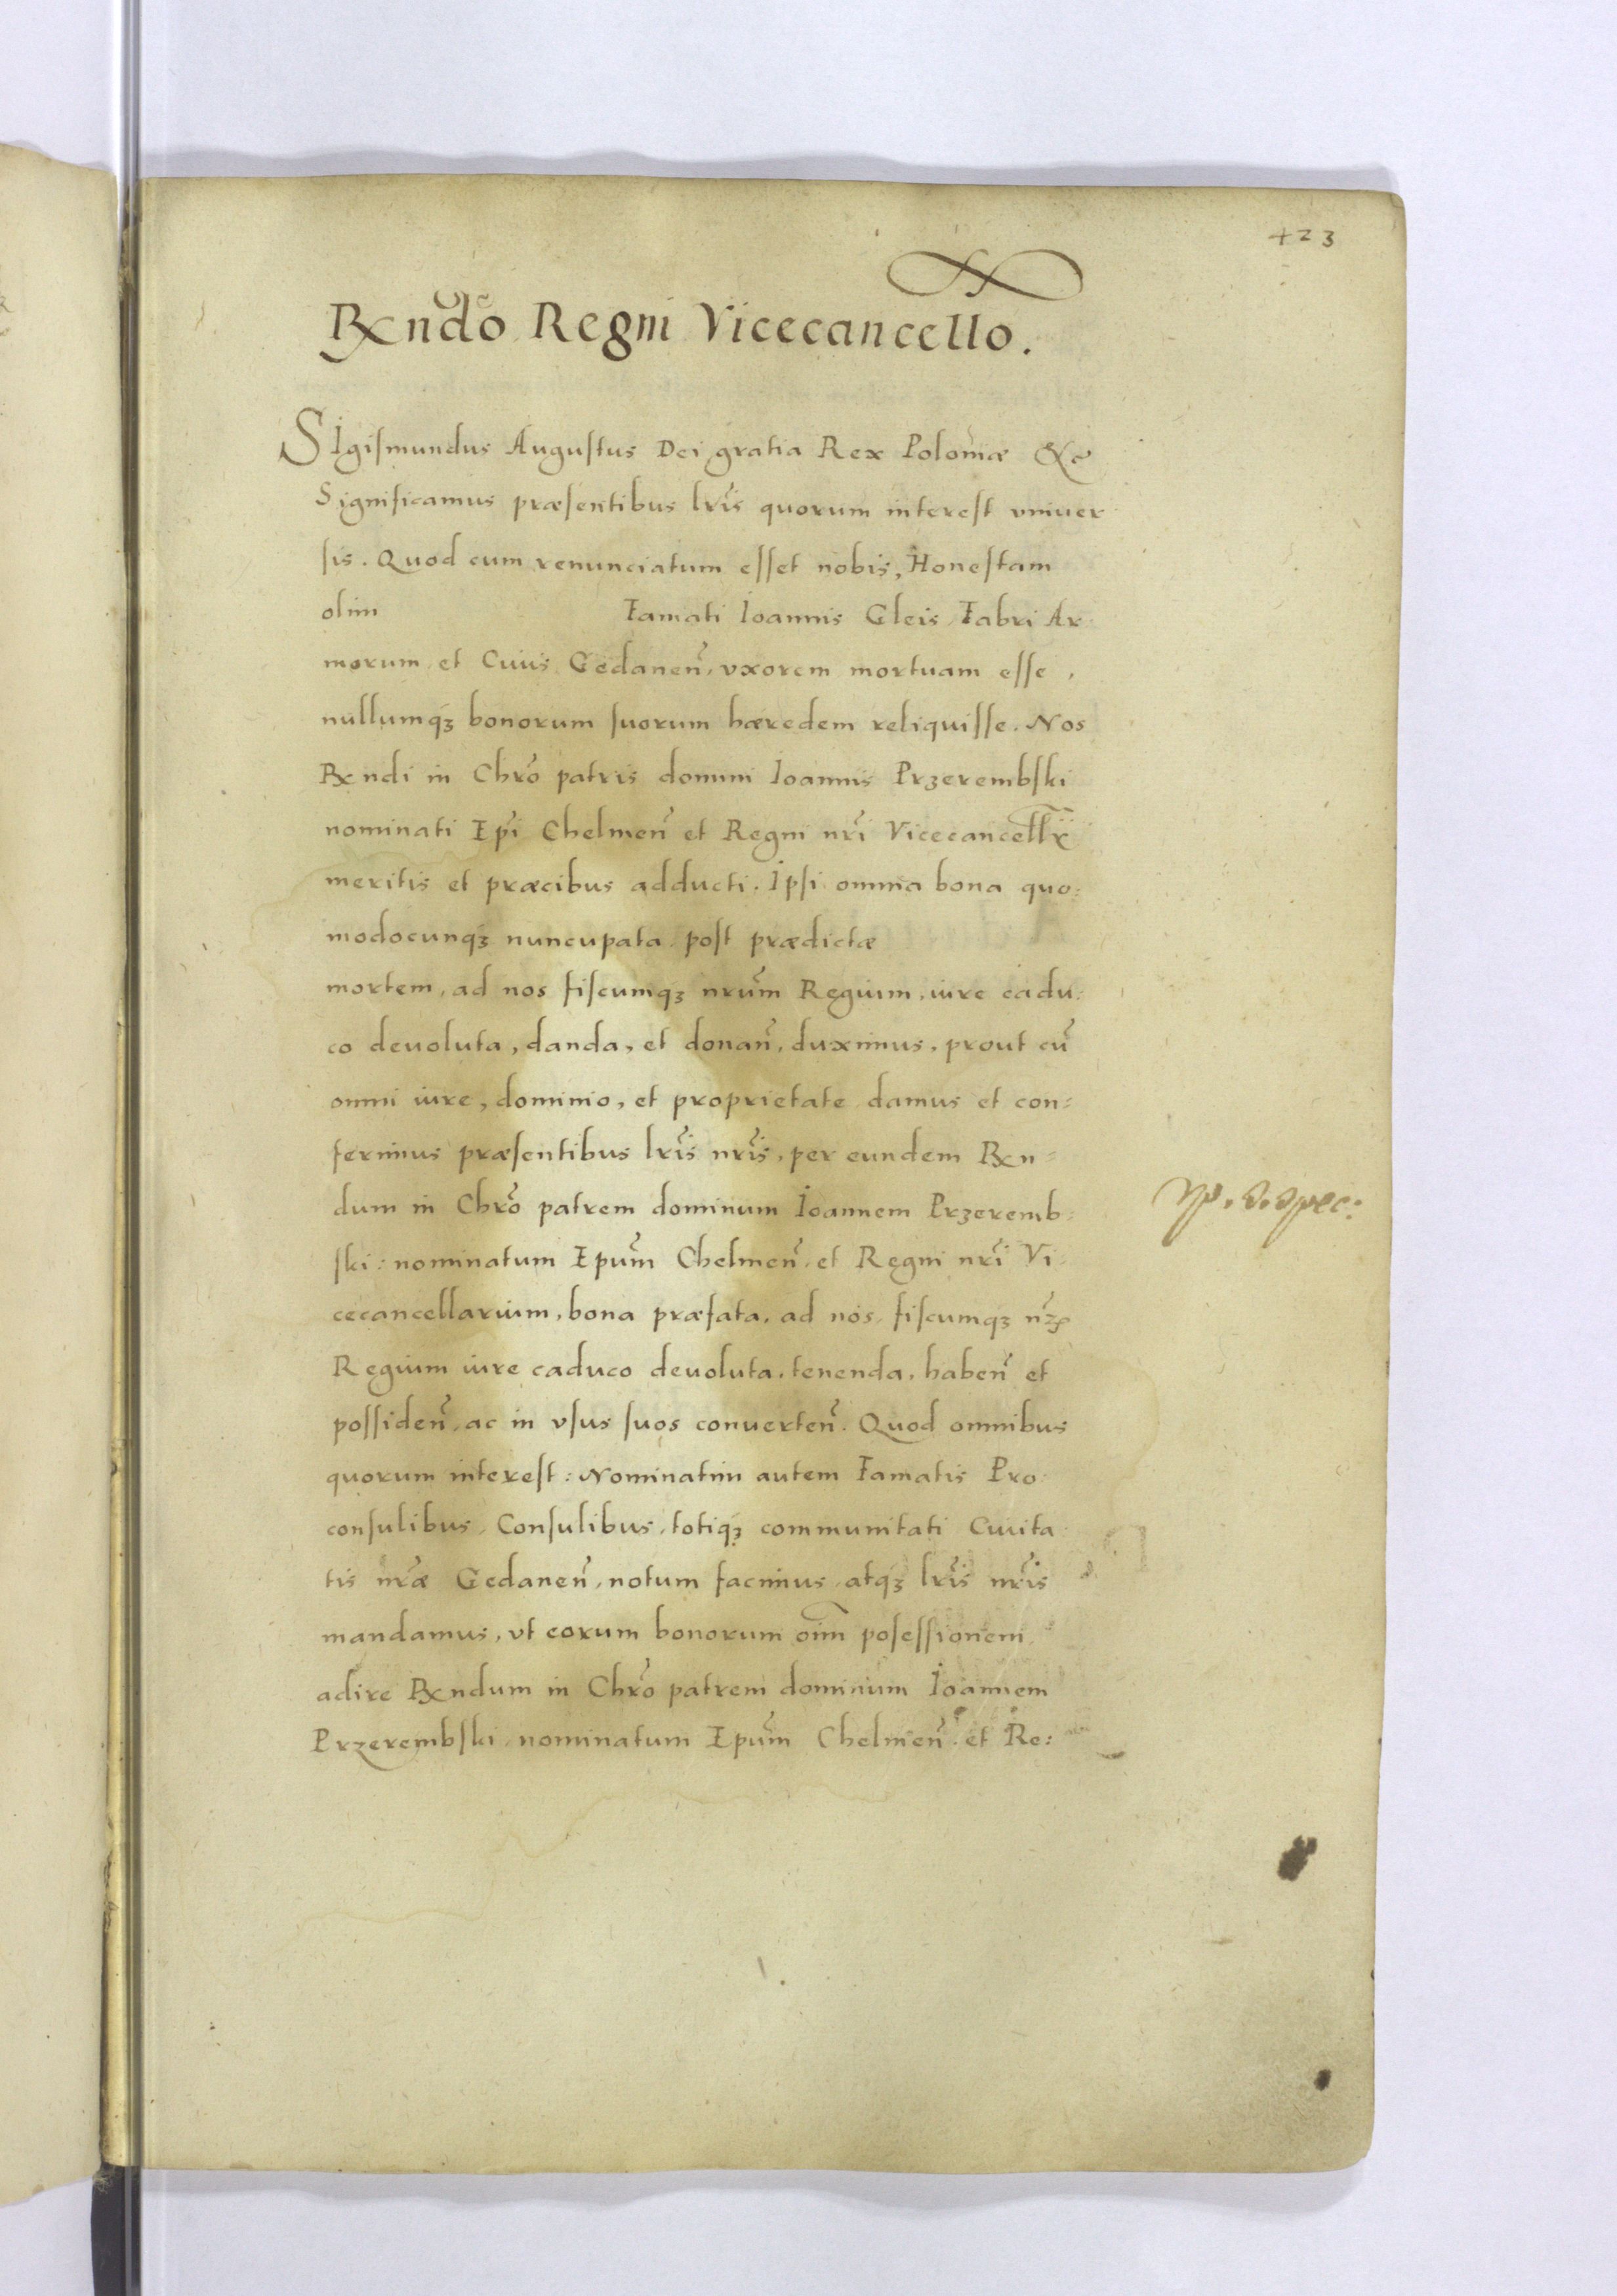 423
Rxndo Regni Vicecancello.
SIgismundus Augustus Dei gratia Rex Poloniæ &c
Significamus præsentibus lr̃is quorum interest vniuer
sis. Quod cum renunciatum esset nobis, Honestam
olim Famati Ioannis Gleis Fabri Ar
morum et Ciuis Gedanen̄, vxorem mortuam esse,
nullumqꝫ bonorum suorum hæredem reliquisse. Nos
Rxndi in Chr̃o patris domini Ioannis Przerembski
nominati Ep̃i Chelmen̄ et Regni nr̃i Vicecancellr̃
meritis et præcibus adducti. Ipsi omnia bona quo:
modocunqꝫ nuncupata post prædictæ
mortem, ad nos fiscumqꝫ nrũm Regium, iure cadu:
co deuoluta, danda, et donan̄, duximus, prout cũ
omni iure, dominio, et proprietate damus et con=
ferimus præsentibus lr̃is nr̃is, per eundem Rxn=
dum in Chr̃o patrem dominum Ioannem Przeremb
ski: nominatum Epũm Chelmen̄ et Regni nr̃i Vi
cecancellarium, bona præfata, ad nos, fiscumqꝫ nr̃ꝫ
Regium iure caduco deuoluta, tenenda, haben̄ et
possiden̄, ac in vsus suos conuerten̄. Quod omnibus
quorum interest: Nominatim autem Famatis Pro
consulibus, Consulibus, totiqꝫ communitati Ciuita
tis nr̃æ Gedanen̄, notum facimus, atqꝫ lr̃is nr̃is
mandamus, vt eorum bonorum oĩm posessionem
adire Rxndum in Chr̃o patrem dominum Ioannem
Przerembski, nominatum Epũm Chelmen̄ et Re: